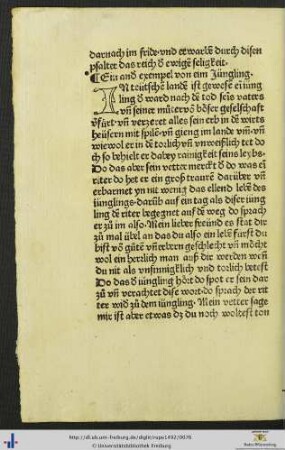 darnach im fride·vnd erwarbe durch disen
psalter das reich d̄ ewigē seligkeit·
¶ Ein and̄ exempel von eim Jüngling·
IN teütschē landē ist gewesē ei iung
ling d̄ ward nach dē tod seīs vaters
vn̄ seiner mūter vō böser geselschaft
v̄fürt·vn̄ verzeret alles sein erb in dē wirts
heüsern mit spilē·vn̄ gieng im lande vm̄·vn̄
wiewol er in dē torlich vn̄ vnweislich tet do
ch so behielt er dabey rainigkeit seins leybs·
Do das aber sein vetter merckt d̄ do was ei
riter do het er ein groß traurē darüber vn̄
erbarmet yn nit wenig das ellend lebē des
iünglings·darūb auf ein tag als diser iüng
ling dē riter begegnet auf dē weg do sprach
er zū im also·Mein lieber freünd es stat dir
zū mal übel an das du also ein lebē fürst du
bist vō gūtē vn̄ erbern geschlecht vn̄ möcht
wol ein herzlich man auß dir werden wen̄
du nit als vnsinnigklich vnd torlich letest
Do das d̄ iüngling hört do spot er sein dar
zū vn̄ verachtet dise wort·do sprach der rit
ter wid̄ zū dem iüngling·Mein vetter sage
mir ist aber etwas dz du noch woltest ton
http://dl.ub.uni-freiburg.de/diglit/rupe1492/0076
© Universitätsbibliothek Freiburg